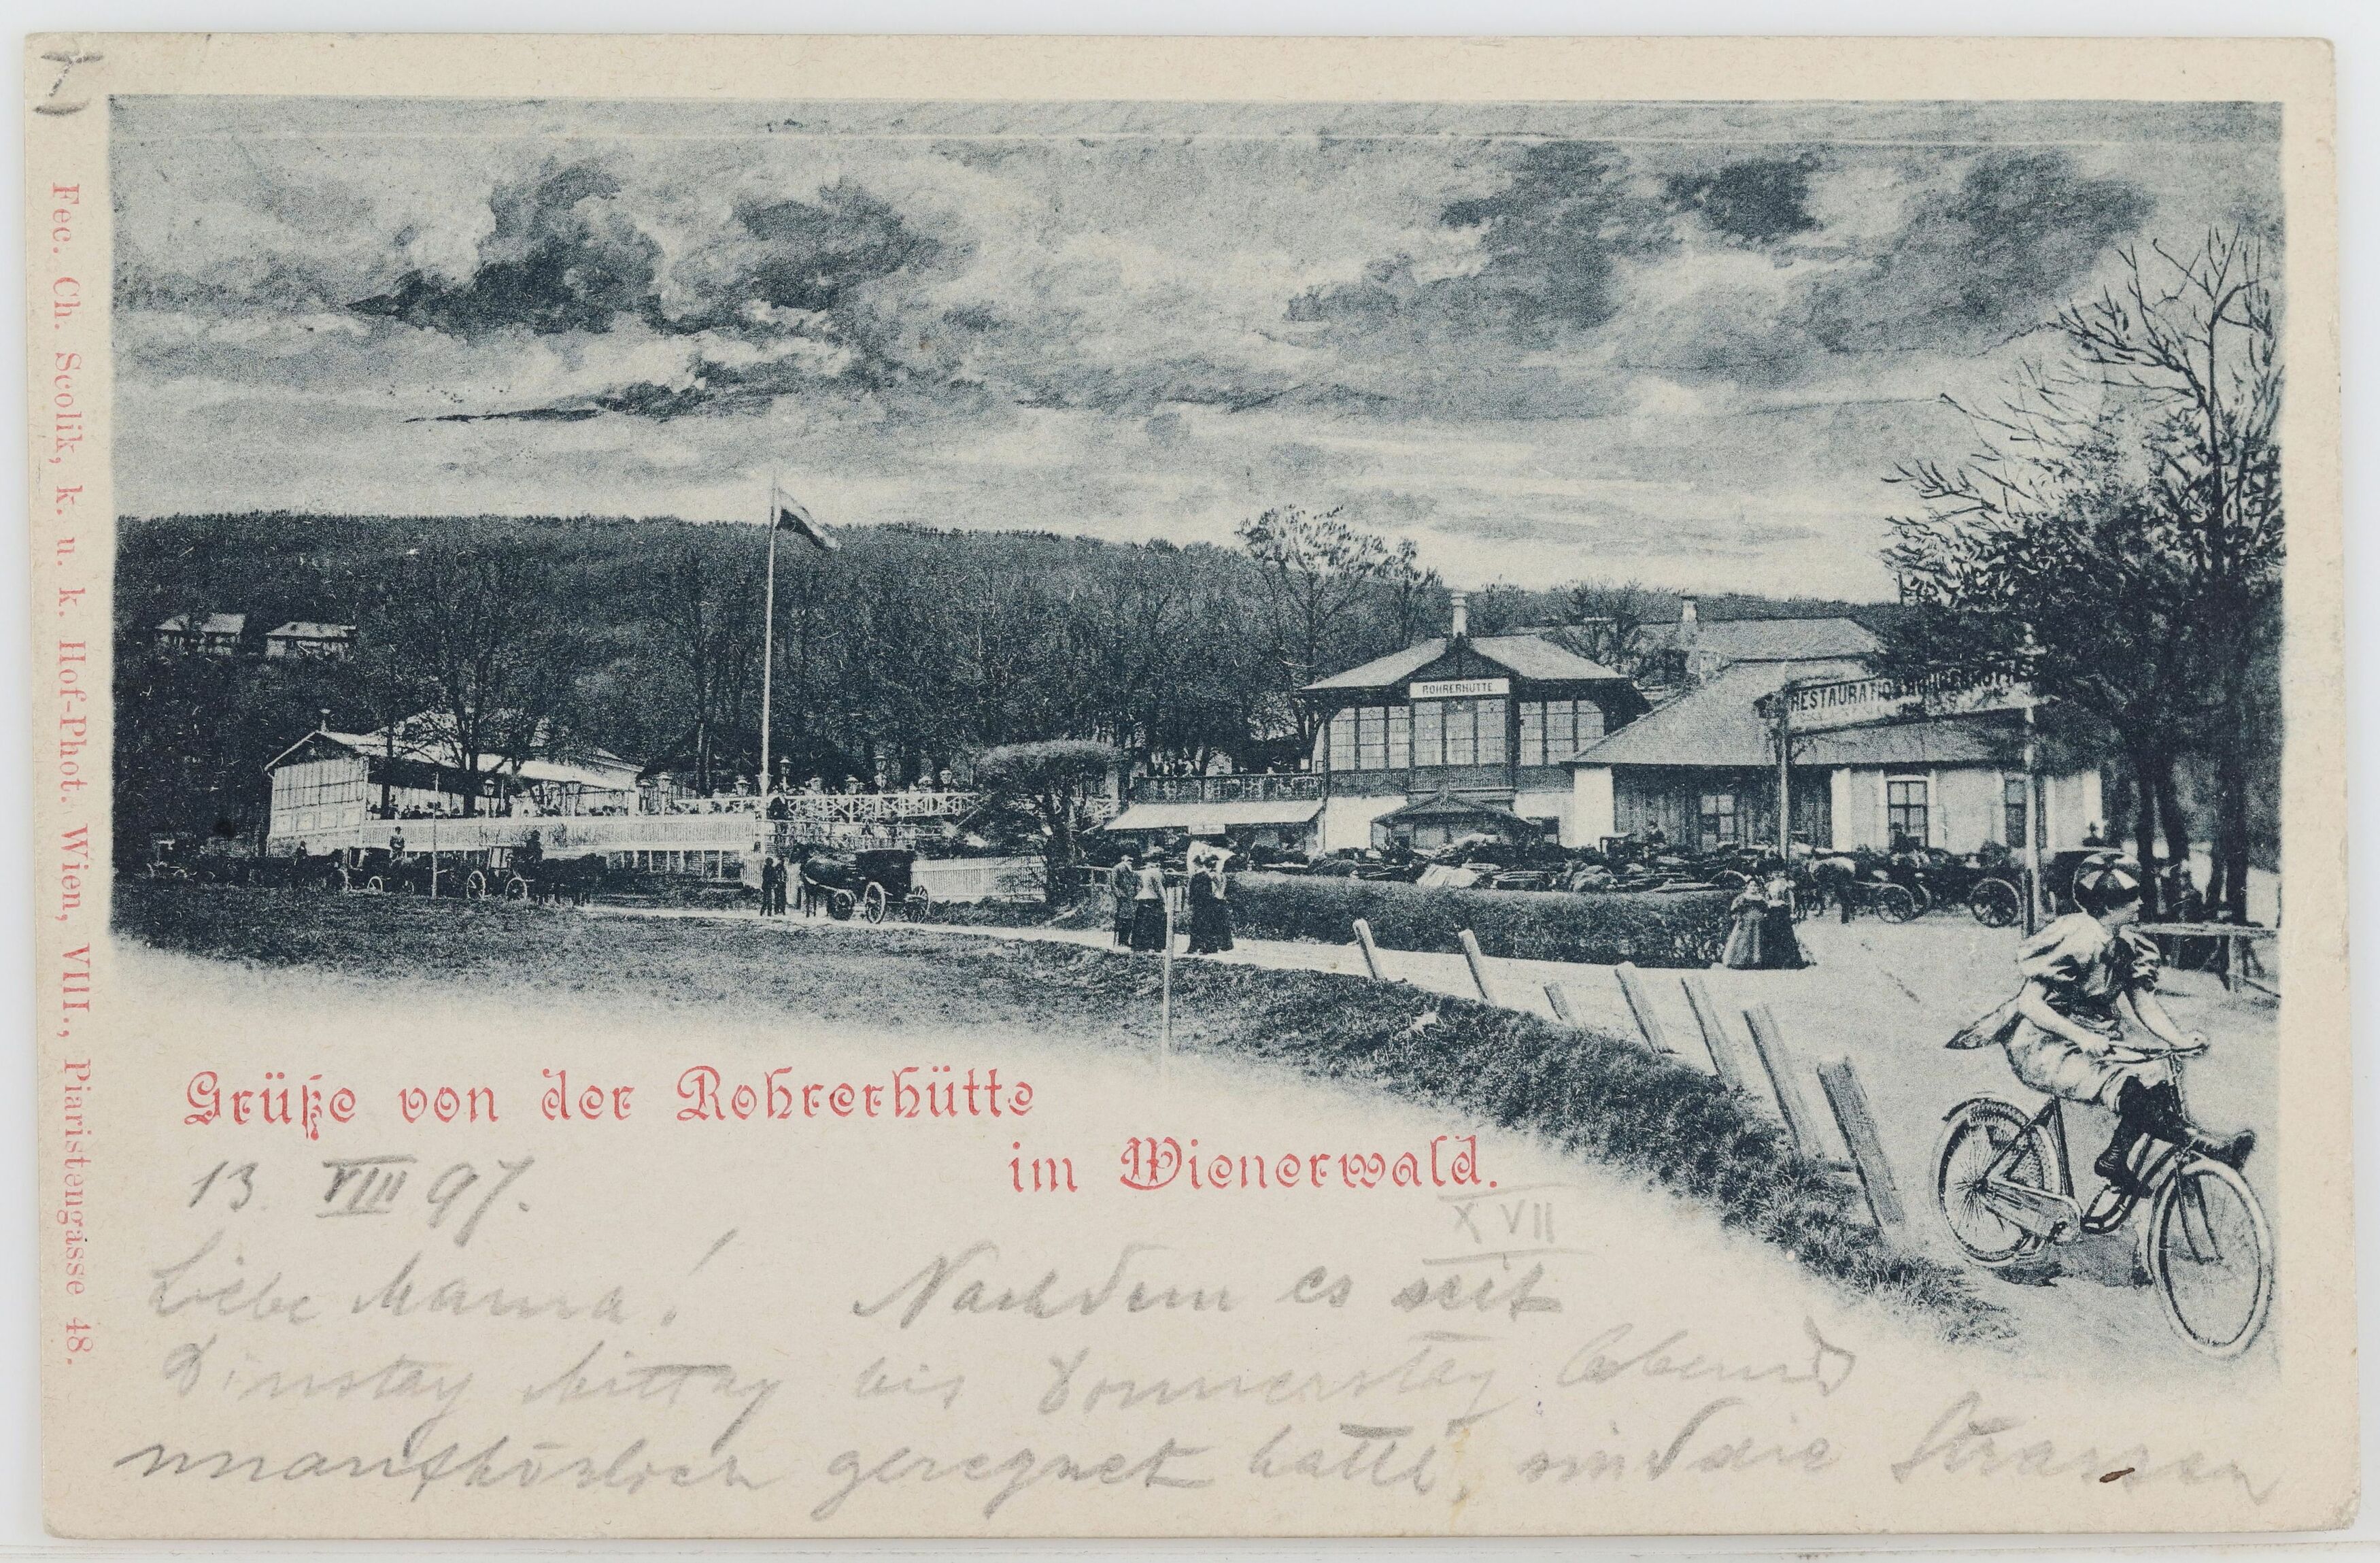 T
Fec. Ch. Scolik, k. u. k. Hof-Phot. Wien, VIII., Piaristengasse 48.
ROHRERHÜTTE
RESTAURATION ROHRERHÜTTE
Grüße von der Rohrerhütte
im Wienerwald.
13. VIII 97.
XVII
Liebe Mama! Nachdem es seit
Dinstag Mittag bis Donnerstag Abend
unaufhörlich geregnet hatte, sind die Strassen